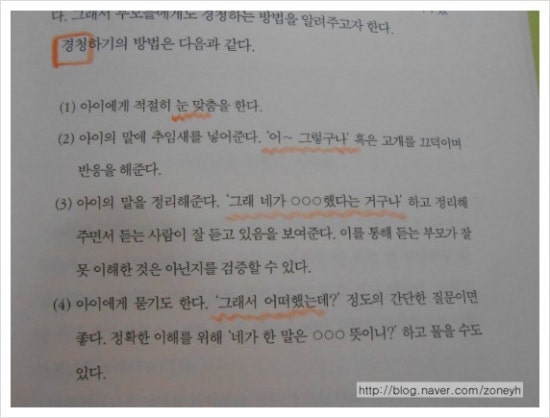 다. 그래서 부모들에게도 경청하는 방법을 알려주고자 한다.
경청하기의 방법은 다음과 같다.
(1) 아이에게 적절히 눈 맞춤을 한다.
(2) 아이의 말에 추임새를 넣어준다. '어~ 그렇구나' 혹은 고개를 끄덕이며
반응을 해준다.
(3) 아이의 말을 정리해준다. '그래 네가 ○○○했다는 거구나' 하고 정리해
주면서 듣는 사람이 잘 듣고 있음을 보여준다. 이를 통해 듣는 부모가 잘
못 이해한 것은 아닌지를 검증할 수 있다.
(4) 아이에게 묻기도 한다. '그래서 어떠했는데?' 정도의 간단한 질문이면
좋다. 정확한 이해를 위해 '네가 한 말은 ○○○ 뜻이니?' 하고 물을 수도
있다.
http://blog.naver.com/zoneyh